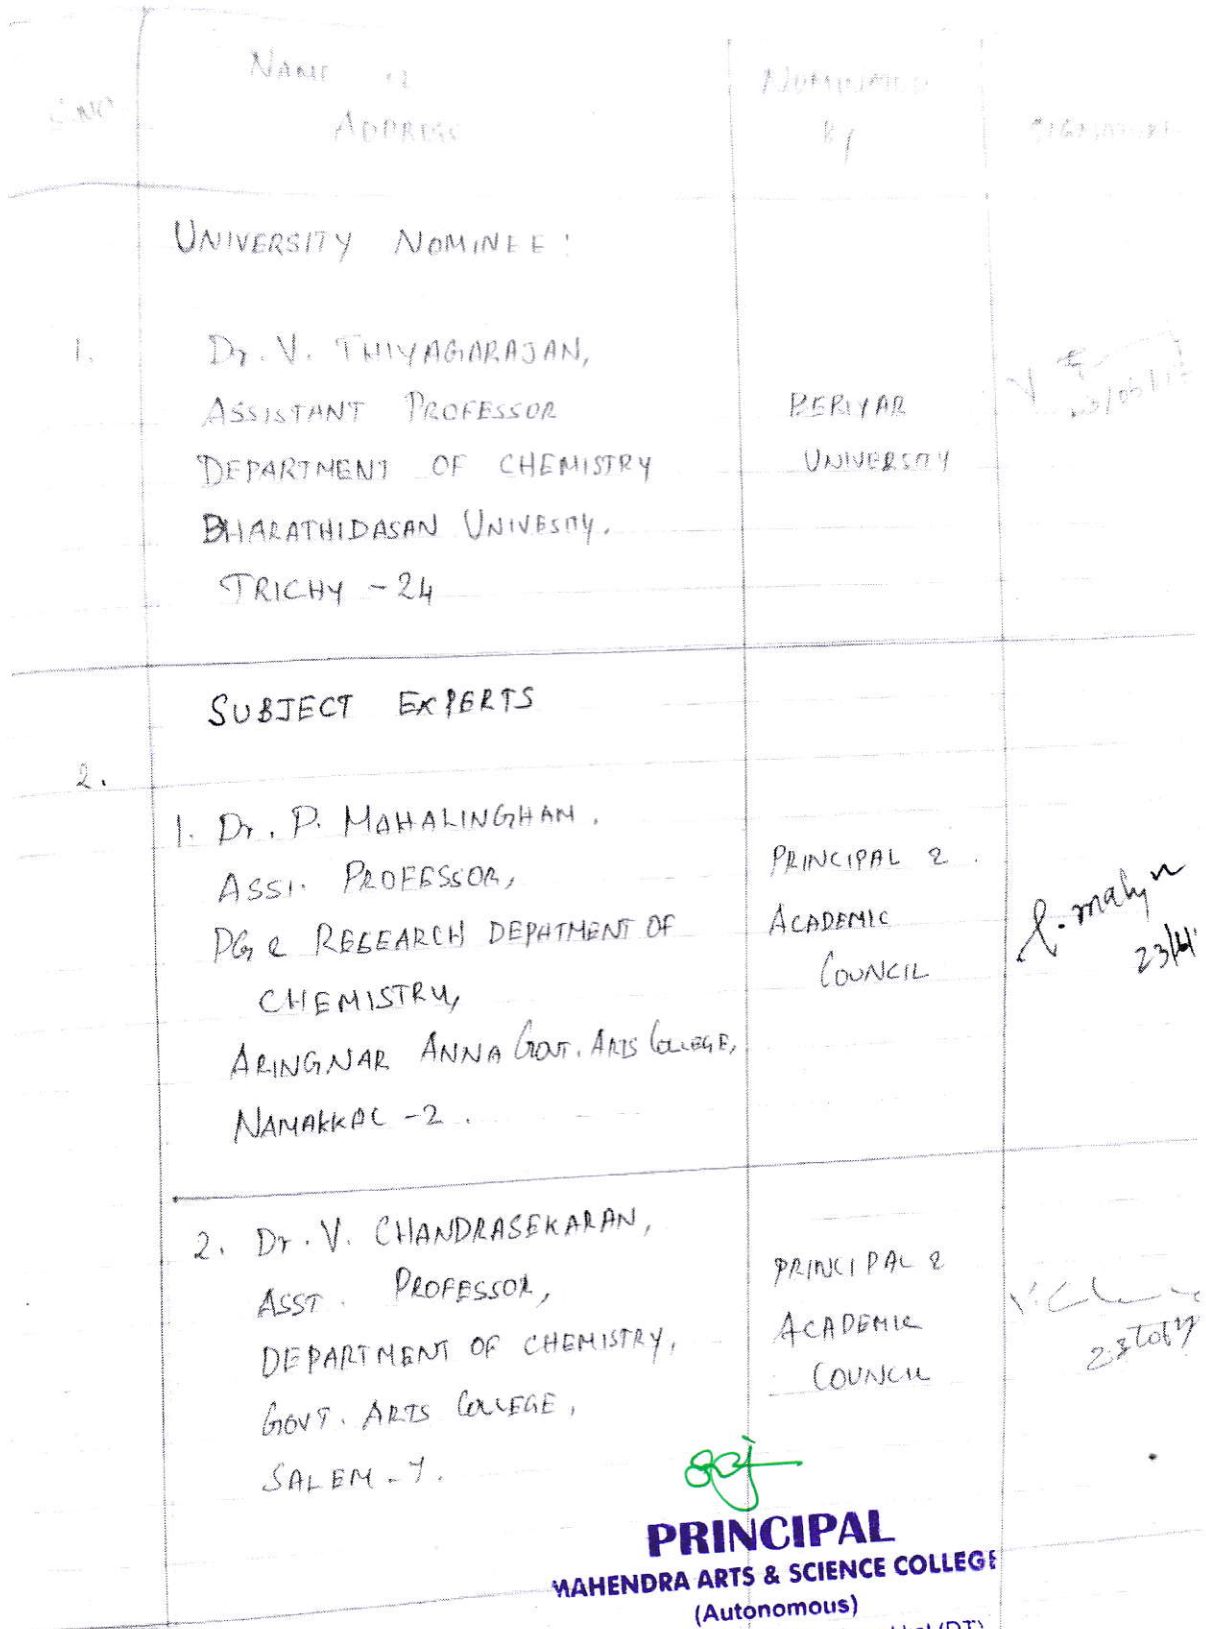 S.NO
NAME &
ADDRESS
NOMINATED
BY
SIGNATURE
UNIVERSITY NOMINEE:
1.
Dr. V. THIYAGARAJAN,
ASSISTANT PROFESSOR
DEPARTMENT OF CHEMISTRY
BHARATHIDASAN UNIVESITY.
TRICHY - 24
PERIYAR
UNIVERSITY
SUBJECT EXPERTS
2.
1. Dr. P. MAHALINGHAM.
ASSI. PROFESSOR,
PG & RESEARCH DEPATMENT OF
CHEMISTRY,
ARINGNAR ANNA GOVT. ARTS COLLEGE,
NAMAKKAL - 2.
PRINCIPAL &
ACADEMIC
COUNCIL
2. Dr. V. CHANDRASEKARAN,
ASST. PROFESSOR,
DEPARTMENT OF CHEMISTRY,
GOVT. ARTS COLLEGE,
SALEM - 7.
PRINCIPAL &
ACADEMIC
COUNCIL
PRINCIPAL
MAHENDRA ARTS & SCIENCE COLLEGE
(Autonomous)
(DT)